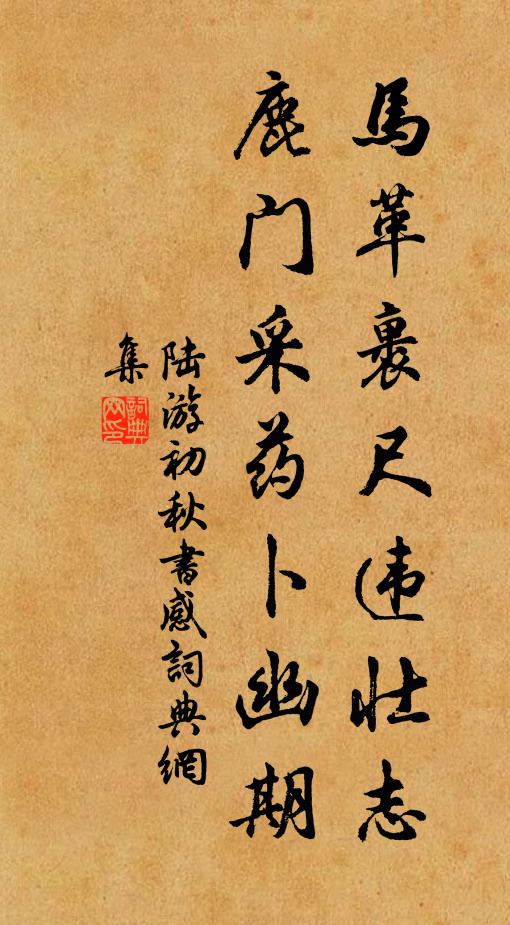 馬革裹尺违壮志
鹿门采药卜幽期
陆游初秋書感詞典網
集
詞典网印